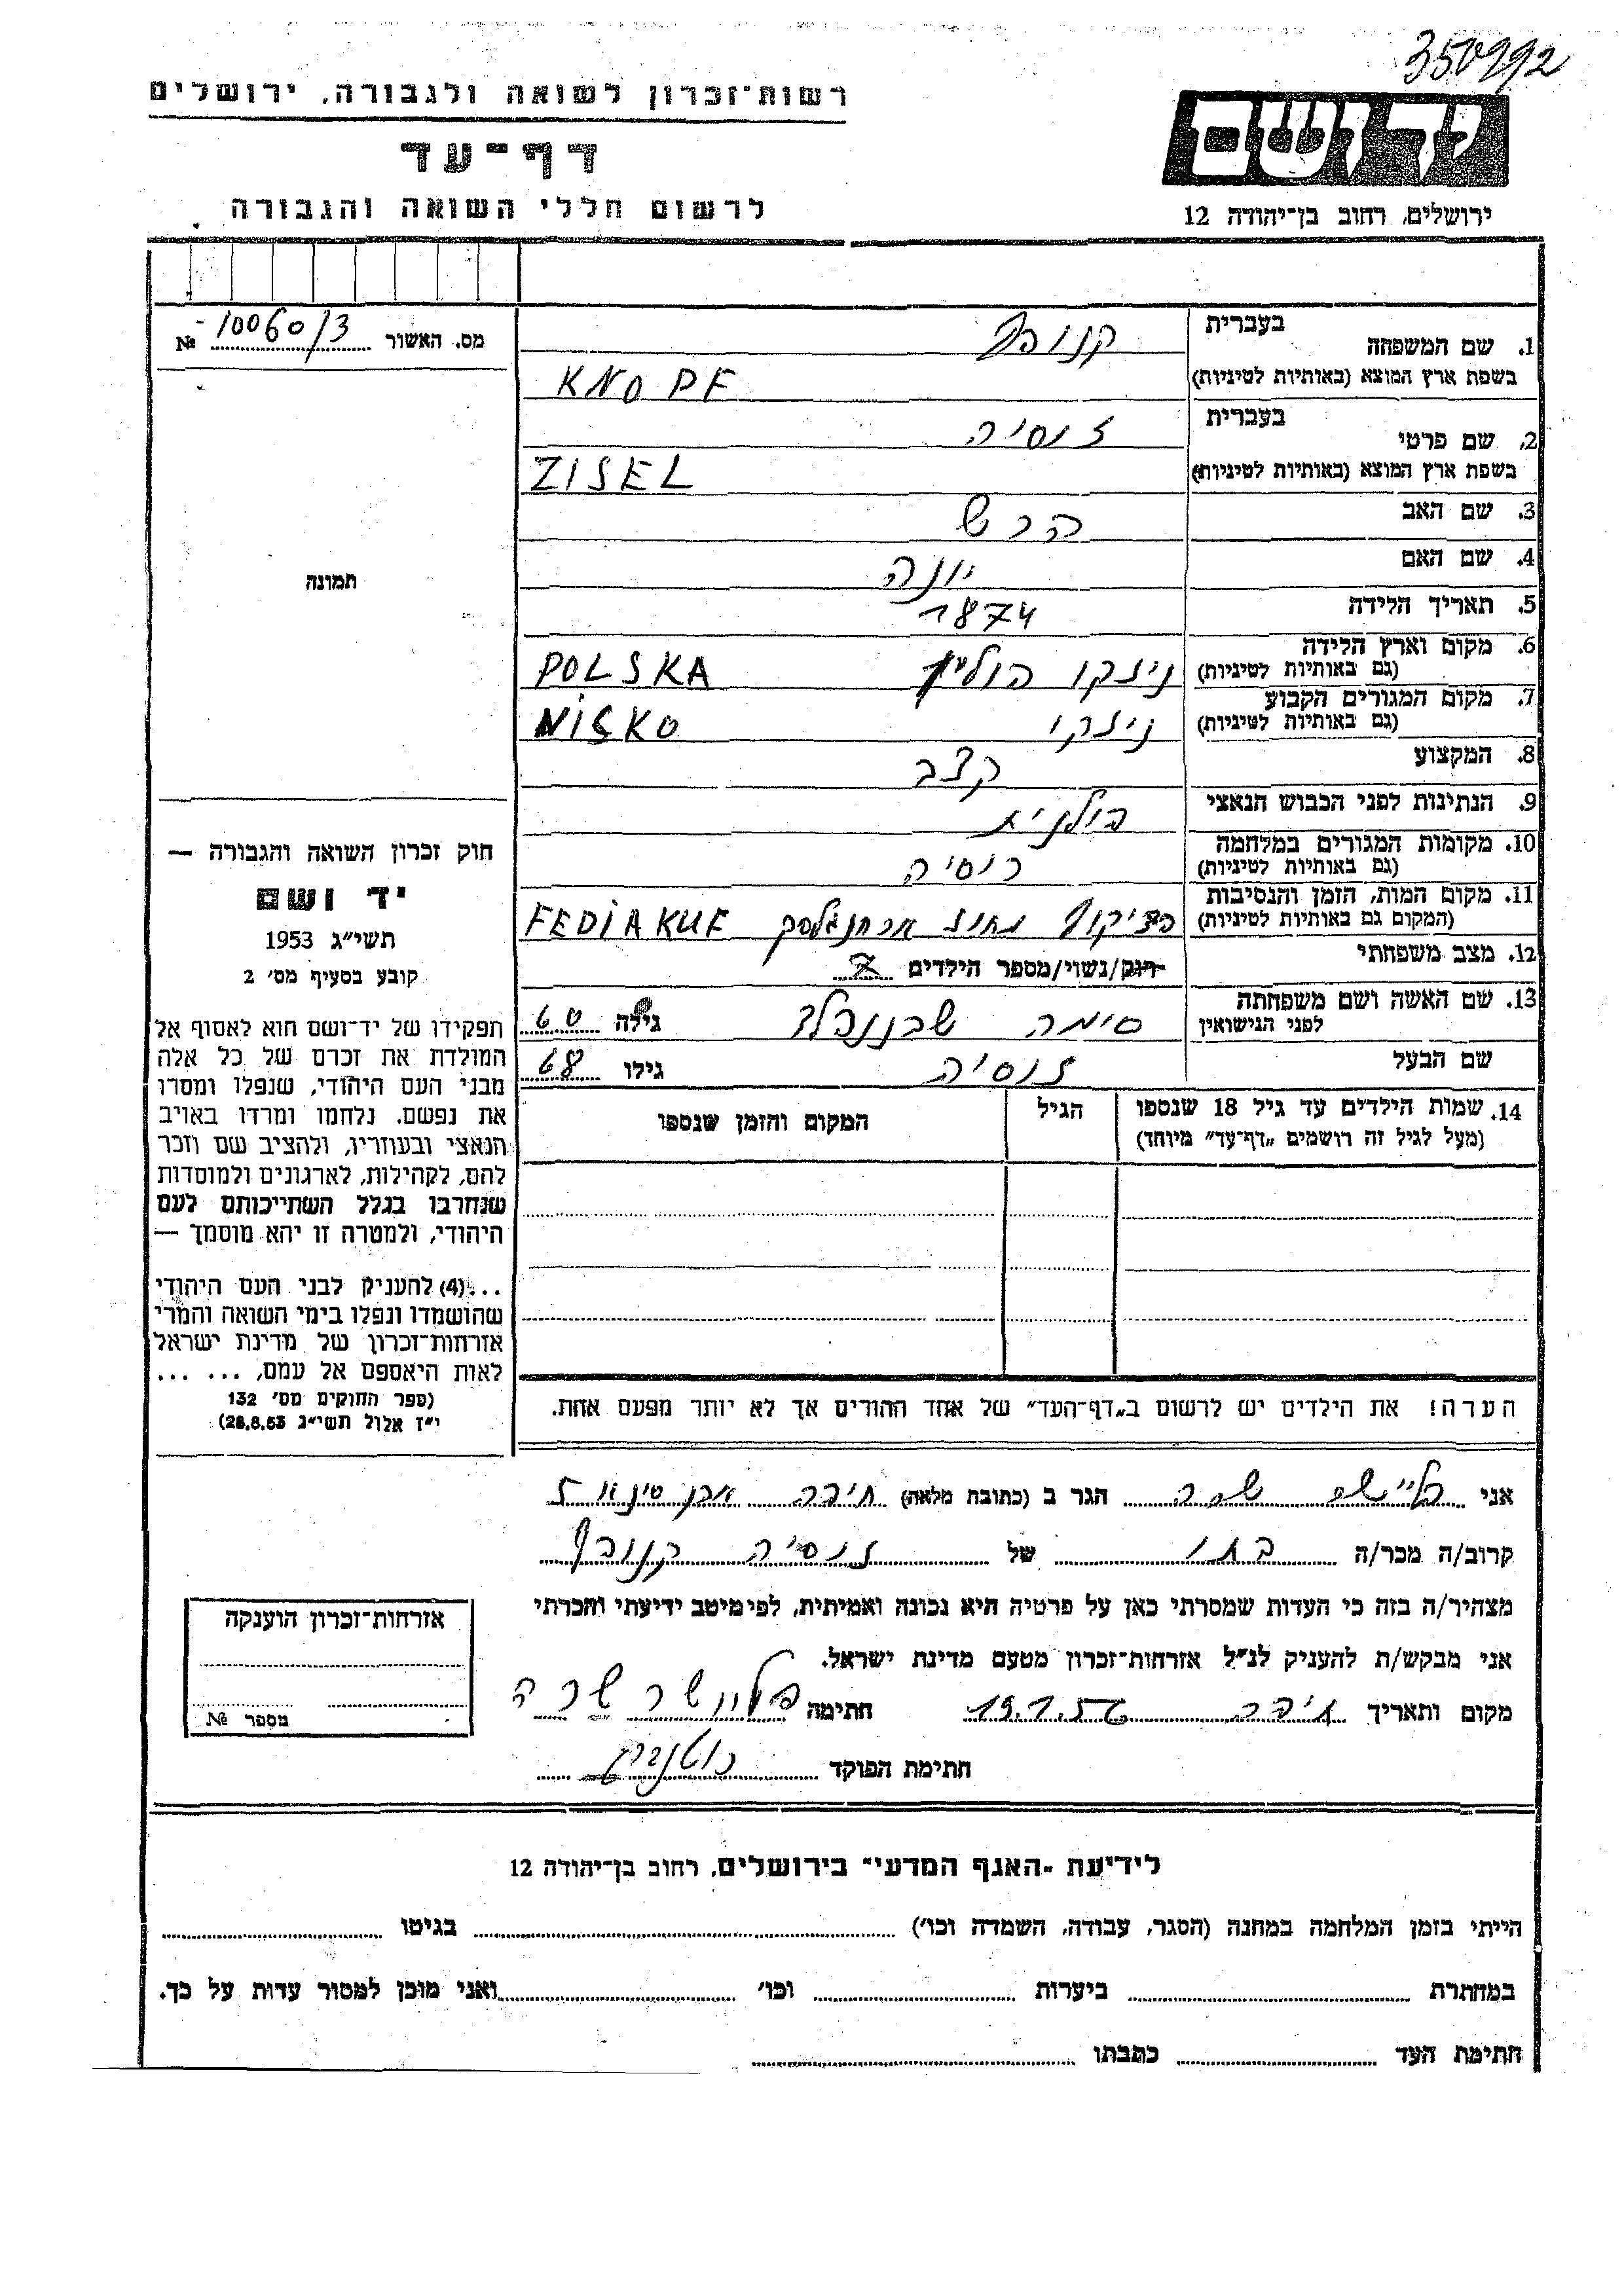 350992
רשות־זכרון לשואה ולגבורה, ירושלים
יד ושם
דף־עד
לרשום חללי השואה והגבורה
ירושלים, רחוב בן־יהודה 12
מס. האשור 10060/3 №
1. שם המשפחה בעברית קנופף
בשפת ארץ המוצא (באותיות לטיניות) KNOPF
2. שם פרטי בעברית זוסיה
בשפת ארץ המוצא (באותיות לטיניות) ZISEL
3. שם האב הרש
4. שם האם יונה
5. תאריך הלידה 1874
6. מקום וארץ הלידה
(גם באותיות לטיניות) ניזקו פולין POLSKA
7. מקום המגורים הקבוע
(גם באותיות לטיניות) ניזקו NISKO
8. המקצוע קצב
9. הנתינות לפני הכבוש הנאצי פולנית
10. מקומות המגורים במלחמה
(גם באותיות לטיניות) רוסיה
11. מקום המות, הזמן והנסיבות
(המקום גם באותיות לטיניות) מחוז ארחנגלסק FEDIAKUF
12. מצב משפחתי רווק/נשוי/מספר הילדים 7
13. שם האשה ושם משפחתה
לפני הנישואין סימה גילה 60
שם הבעל זוסיה גילו 68
14. שמות הילדים עד גיל 18 שנספו
(מעל לגיל זה רושמים „דף־עד" מיוחד)
הגיל
המקום והזמן שנספו
תמונה
חוק זכרון השואה והגבורה —
יד ושם
תשי״ג 1953
קובע בסעיף מס׳ 2
תפקידו של יד־ושם הוא לאסוף אל
המולדת את זכרם של כל אלה
מבני העם היהודי, שנפלו ומסרו
את נפשם, נלחמו ומרדו באויב
הנאצי ובעוזריו, ולהציב שם וזכר
להם, לקהילות, לארגונים ולמוסדות
שנחרבו בגלל השתייכותם לעם
היהודי, ולמטרה זו יהא מוסמך —
...(4) להעניק לבני העם היהודי
שהושמדו ונפלו בימי השואה והמרי
אזרחות־זכרון של מדינת ישראל
לאות היאספם אל עמם, ... ...
(ספר החוקים מס׳ 132
י״ז אלול תשי״ג 28.8.53)
הערה! את הילדים יש לרשום ב„דף־העד" של אחד ההורים אך לא יותר מפעם אחת.
אני פליישר שרה הגר ב (כתובת מלאה) חיפה
קרוב/ה מכר/ה בתו של זוסיה קנופף
מצהיר/ה בזה כי העדות שמסרתי כאן על פרטיה היא נכונה ואמיתית, לפי מיטב ידיעתי והכרתי
אני מבקש/ת להעניק לנ״ל אזרחות־זכרון מטעם מדינת ישראל.
מקום ותאריך חיפה 19.1.56 חתימה פליישר שרה
חתימת הפוקד
אזרחות־זכרון הוענקה
מספר №
לידיעת „האגף המדעי" בירושלים, רחוב בן־יהודה 12
הייתי בזמן המלחמה במחנה (הסגר, עבודה, השמדה וכו׳) בגיטו
במחתרת ביערות וכו׳ ואני מוכן למסור עדות על כך.
חתימת העד כתבתו